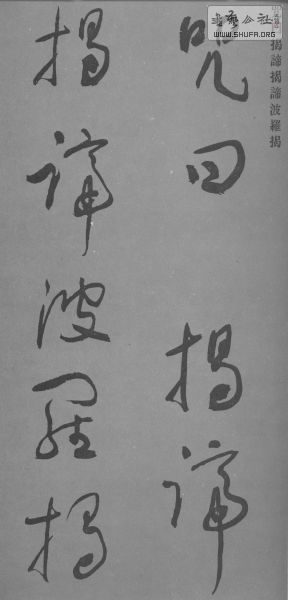 咒曰揭諦
揭諦波羅揭
揭諦揭諦波羅揭
书艺公社
WWW.SHUFA.ORG